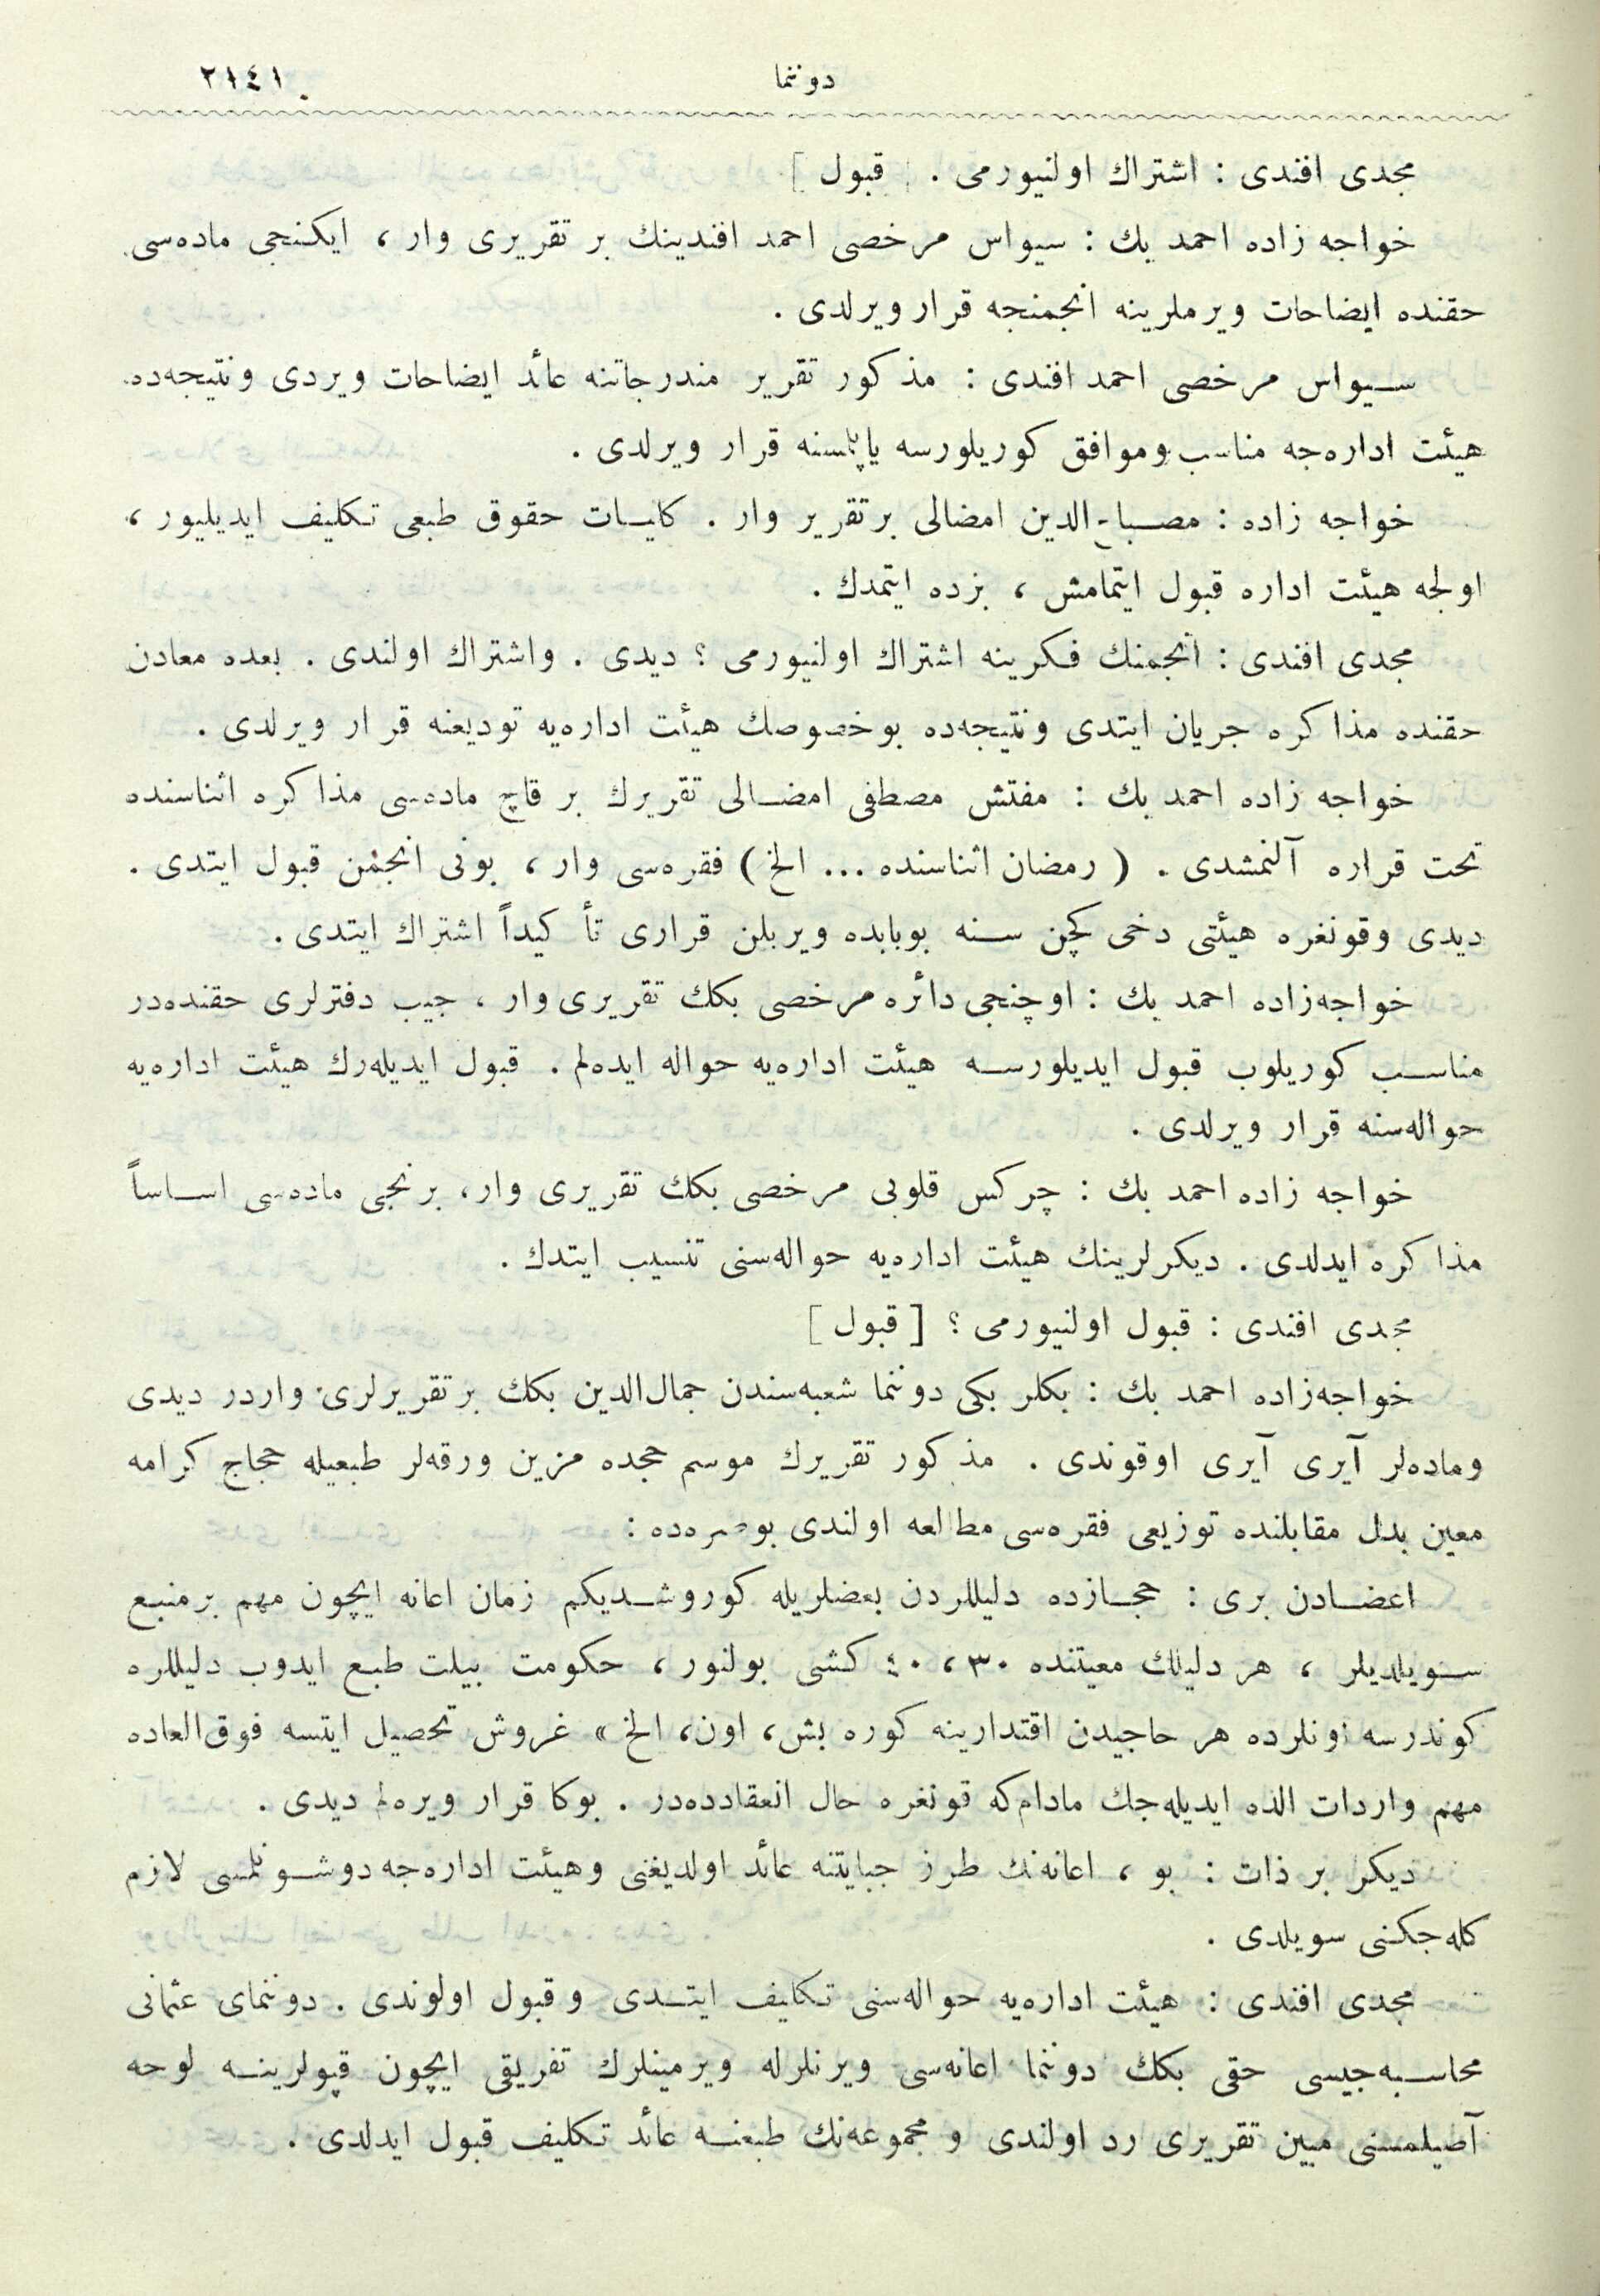 دوننما
٢١٤١
مجدى افندى : اشتراك اولنيورمى . [ قبول ]
خواجه زاده احمد بك : سيواس مرخصى احمد افندينك بر تقريرى وار ، ايكنجى ماده‌سى
حقنده ايضاحات ويرملرينه انجمنجه قرار ويرلدى .
سيواس مرخصى احمد افندى : مذكور تقرير مندرجاتنه عائد ايضاحات ويردى ونتيجه‌ده
هيئت اداره‌جه مناسب وموافق كوريلورسه ياپلسنه قرار ويرلدى .
خواجه زاده : مصباح‌الدين امضالى برتقرير وار . كليات حقوق طبعى تكليف ايديليور ،
اولجه هيئت اداره قبول ايتمامش ، بزده ايتمدك .
مجدى افندى : انجمنك فكرينه اشتراك اولنيورمى ؟ ديدى . واشتراك اولندى . بعده معادن
حقنده مذاكره جريان ايتدى ونتيجه‌ده بوخصوصك هيئت اداره‌يه توديعنه قرار ويرلدى .
خواجه زاده احمد بك : مفتش مصطفى امضالى تقريرك بر قاچ ماده‌سى مذاكره اثناسنده
تحت قراره آلنمشدى . ( رمضان اثناسنده ... الخ ) فقره‌سى وار ، بونى انجمن قبول ايتدى .
ديدى وقونغره هيئتى دخى كچن سنه بوبابده ويريلن قرارى تأكيداً اشتراك ايتدى .
خواجه‌زاده احمد بك : اوچنجى دائره مرخصى بكك تقريرى وار ، جيب دفترلرى حقنده‌در
مناسب كوريلوب قبول ايديلورسه هيئت اداره‌يه حواله ايده‌لم . قبول ايديله‌رك هيئت اداره‌يه
حواله‌سنه قرار ويرلدى .
خواجه زاده احمد بك : چركس قلوبى مرخصى بكك تقريرى وار ، برنجى ماده‌سى اساساً
مذاكره ايدلدى . ديكرلرينك هيئت اداره‌يه حواله‌سنى تنسيب ايتدك .
مجدى افندى : قبول اولنيورمى ؟ [ قبول ]
خواجه‌زاده احمد بك : بكلر بكى دوننما شعبه‌سندن جمال‌الدين بكك برتقريرلرى واردر ديدى
وماده‌لر آيرى آيرى اوقوندى . مذكور تقريرك موسم حجده مزين ورقه‌لر طبعيله حجاج كرامه
معين بدل مقابلنده توزيعى فقره‌سى مطالعه اولندى بوصره‌ده :
اعضادن برى : حجازده دليللردن بعضلريله كوروشديكم زمان اعانه ايچون مهم برمنبع
سويلديلر ، هر دليلك معيتنده ٣٠ ، ٤٠ كشى بولنور ، حكومت بيلت طبع ايدوب دليللره
كوندرسه اونلرده هر حاجيدن اقتدارينه كوره بش ، اون ، الخ » غروش تحصيل ايتسه فوق‌العاده
مهم واردات الده ايديله‌جك مادام‌كه قونغره حال انعقادده‌در . بوكا قرار ويره‌لم ديدى .
ديكر بر ذات : بو ، اعانه‌نك طرز جبايتنه عائد اولديغنى وهيئت اداره‌جه دوشونلمسى لازم
كله‌جكنى سويلدى .
مجدى افندى : هيئت اداره‌يه حواله‌سنى تكليف ايتدى وقبول اولوندى . دوننماى عثمانى
محاسبه‌جيسى حقى بكك دوننما اعانه‌سى ويرنلرله ويرمينلرك تفريقى ايچون قپولرينه لوحه
آصيلمسنى مبين تقريرى رد اولندى و مجموعه‌نك طبعنه عائد تكليف قبول ايدلدى .